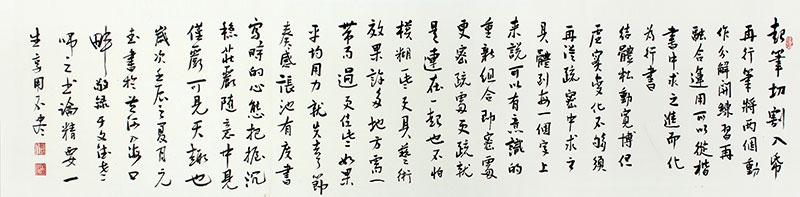 起筆切割入紙
再行筆將兩個動
作分解開練習再
融合運用可以從楷
書中求之進而化
為行書
結體松動寬博但
虛實變化不夠須
再從疏密中求之
具體到每一個字上
來說可以有意識的
重新組合即密處
更密疏處更疏就
是連在一起也不怕
模糊些更具藝術
效果許多地方需一
帶而過更佳些如果
平均用力就失去了節
奏感張弛有度書
寫時的心態把握沉
穩莊嚴隨意中見
僅嚴可見天趣也
歲次壬辰之夏月元
玉書於黃河入海口
畔
師之書論精要一
生享用不尽